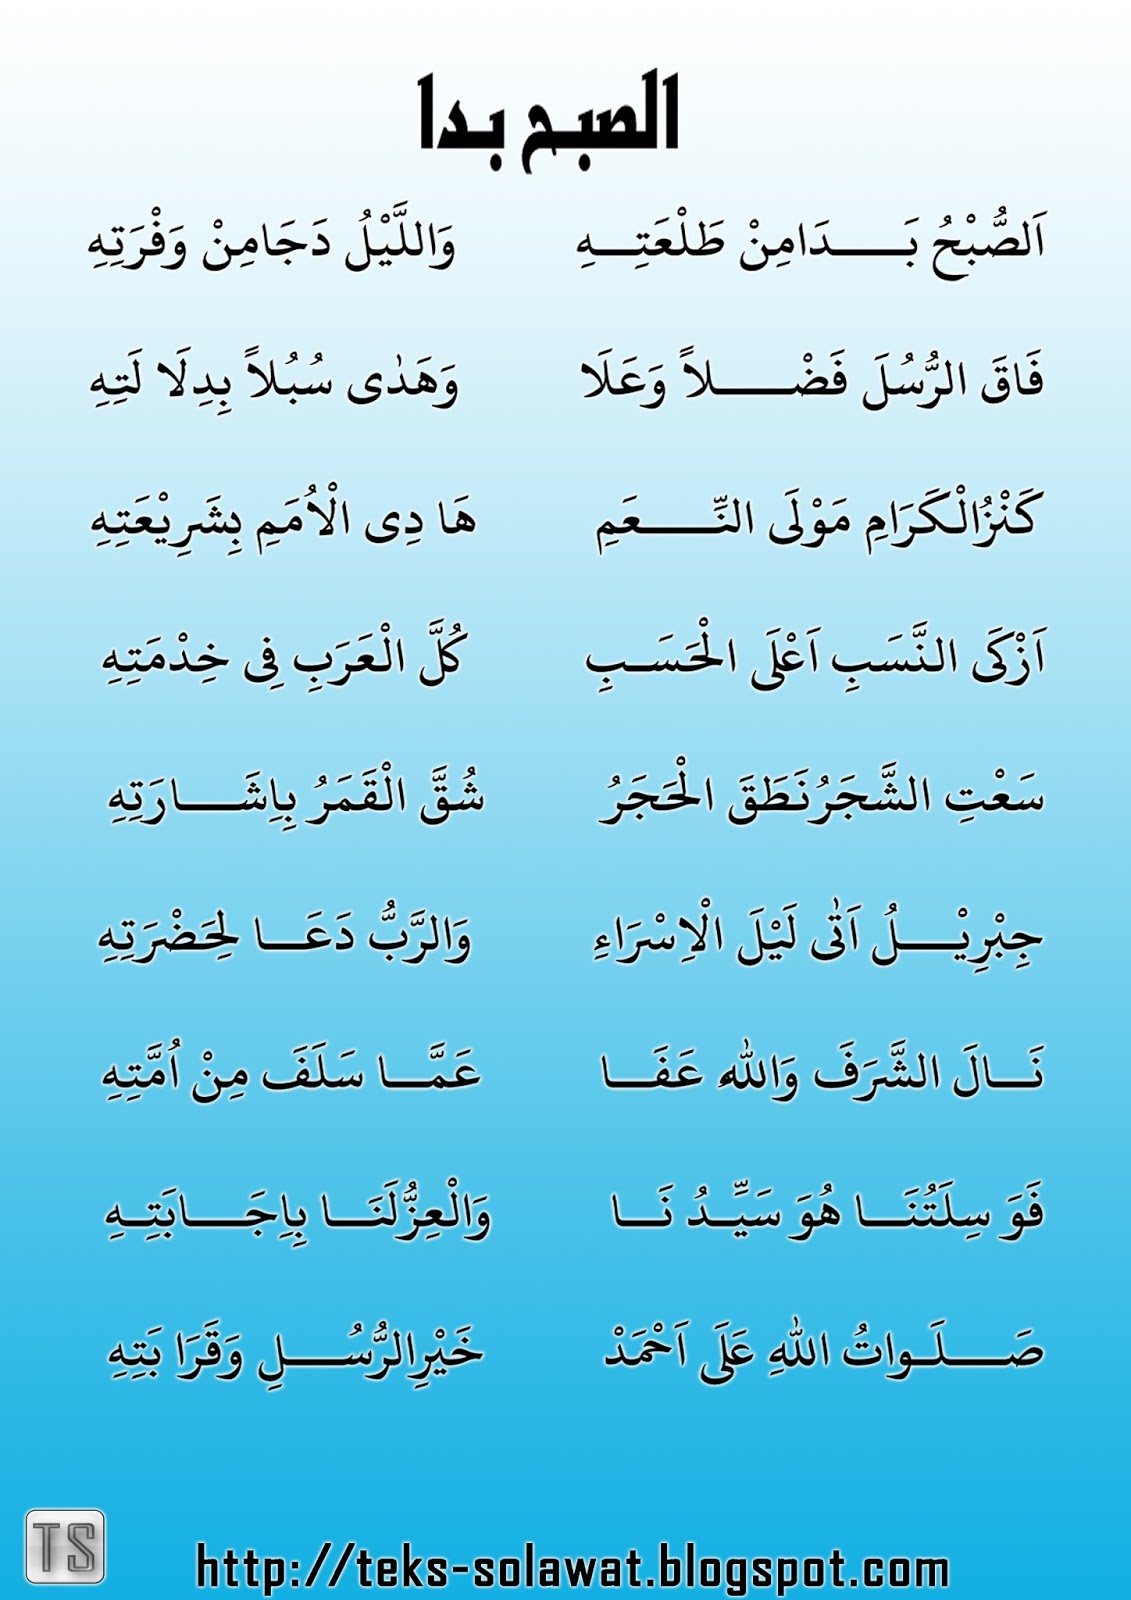 الصبح بدا
اَلصُّبْحُ بَـــدَامِنْ طَلْعَتِـــهِ وَاللَّيْلُ دَجَامِنْ وَفْرَتِهِ
فَاقَ الرُّسُلَ فَضْـــلاً وَعَلَا وَهَدٰى سُبُلاً بِدِلَا لَتِهِ
كَنْزُالْكَرَامِ مَوْلَى النِّـــعَمِ هَا دِى الْاُمَمِ بِشَرِيْعَتِهِ
اَزْكَى النَّسَبِ اَعْلَى الْحَسَـبِ كُلَّ الْعَرَبِ فِى خِدْمَتِهِ
سَعْتِ الشَّجَرُنَطَقَ الْحَجَرُ شُقَّ الْقَمَرُ بِاِشَـــارَتِهِ
جِبْرِيْـــلُ اَتٰى لَيْلَ الْاِسْرَاءِ وَالرَّبُّ دَعَـــا لِحَضْرَتِهِ
نَـــالَ الشَّرَفَ وَاللّٰه عَفَـــا عَمَّـــا سَلَفَ مِنْ اُمَّتِهِ
فَوَ سِلَتُنَـــا هُوَ سَيِّـــدُ نَـــا وَالْعِزُّلَنَـــا بِاِجَـــابَتِـــهِ
صَـــلَـواتُ اللّٰهِ عَلَى اَحْمَدْ خَيْرِالرُّسُـــلِ وَقَرَا بَتِهِ
TS
http://teks-solawat.blogspot.com